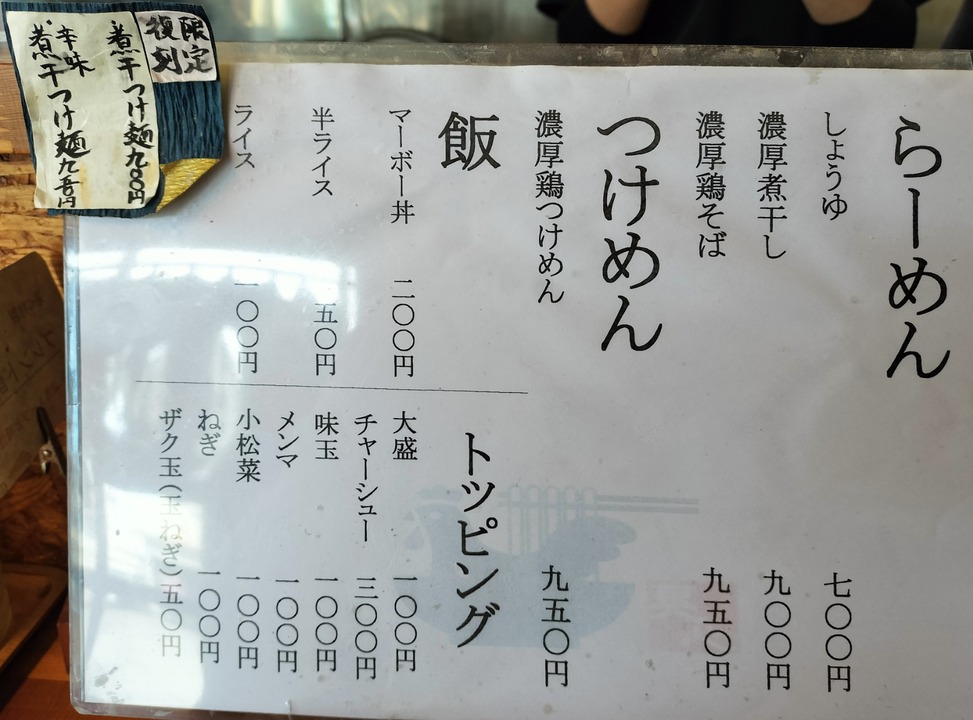 らーめん
しょうゆ 七〇〇円
濃厚煮干し 九〇〇円
濃厚鶏そば 九五〇円
つけめん
濃厚鶏つけめん 九五〇円
飯
マーボー丼 二〇〇円
半ライス 五〇円
ライス 一〇〇円
トッピング
大盛 一〇〇円
チャーシュー 三〇〇円
味玉 一〇〇円
メンマ 一〇〇円
小松菜 一〇〇円
ねぎ 一〇〇円
ザク玉(玉ねぎ) 五〇円
限定
復刻
煮干つけ麺九〇〇円
辛味
煮干つけ麺九五〇円